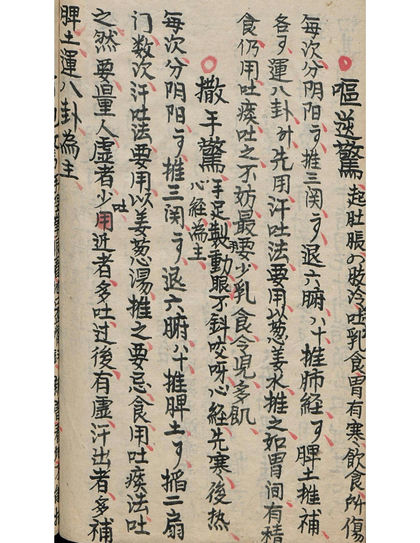 嘔逆驚 起肚脹四肢冷吐乳食胃有寒飲食所傷
每次分阴阳可推三関可退六腑八十推肺經可脾土推補
各可運八卦外先用汗吐法要用以葱姜水推之如胃間有積
食仍用吐痰吐之不妨最要少乳食令児多飢
撒手驚 手足製動眼乃斜咬呀心經先寒後热
心經為主
每次分阴阳可推三関可退六腑八十推脾土可掐二扇
门数次汗吐法要用以姜葱湯推之要忌食用吐痰法吐
之然要量人虚者少用吐近者多吐过後有虚汗出者多補
脾土運八卦為主